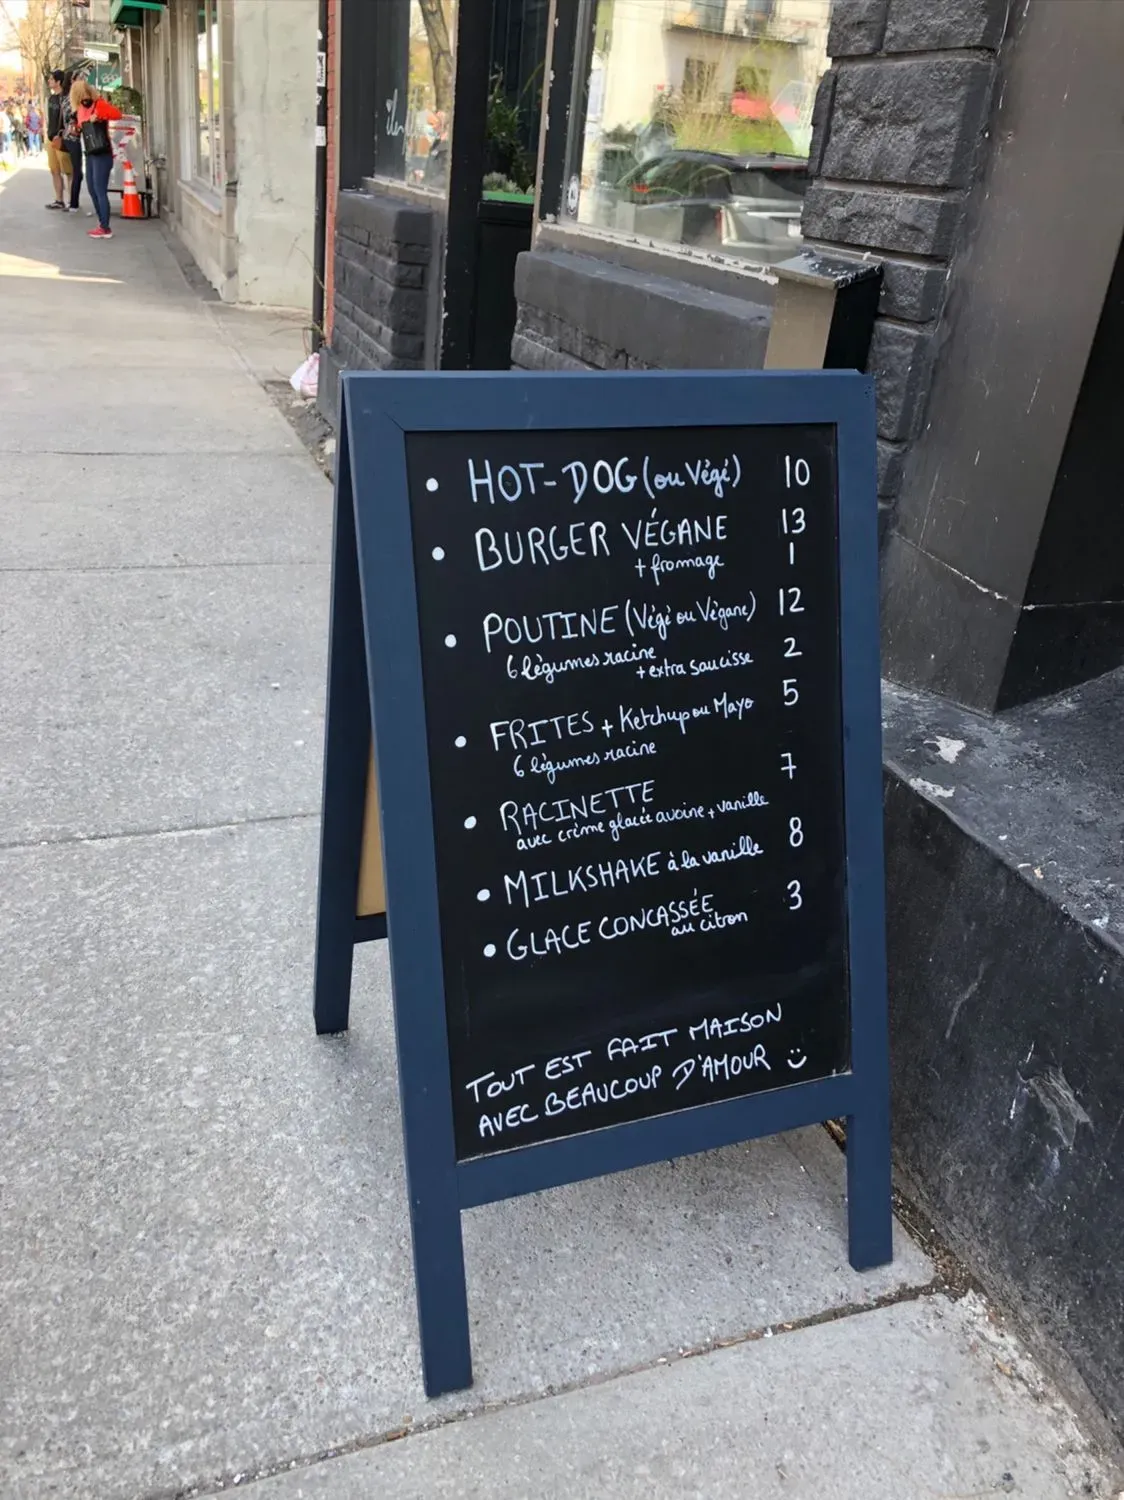 • HOT-DOG (ou Végé) 10
• BURGER VÉGANE 13
+ fromage 1
• POUTINE (Végé ou Végane) 12
6 légumes racine
+ extra saucisse 2
• FRITES + Ketchup ou Mayo 5
6 légumes racine
• RACINETTE 7
avec crème glacée avoine + vanille
• MILKSHAKE à la vanille 8
• GLACE CONCASSÉE 3
au citron
TOUT EST FAIT MAISON
AVEC BEAUCOUP D'AMOUR